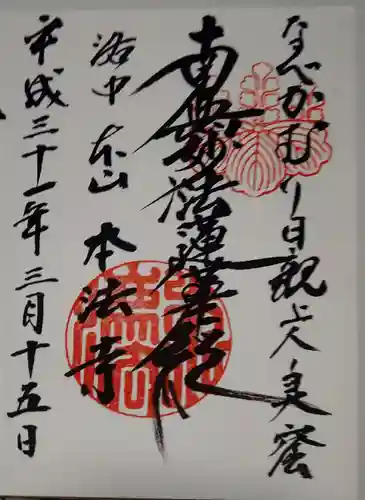 なべかむり日親上人真蜜
南無妙法蓮華経
洛中 本山 本法寺
平成三十一年三月十五日